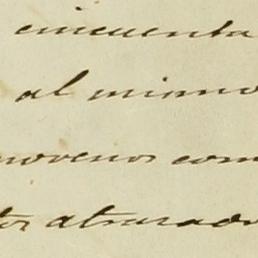 cincuenta
al mismo
novenos com
tos atrasado